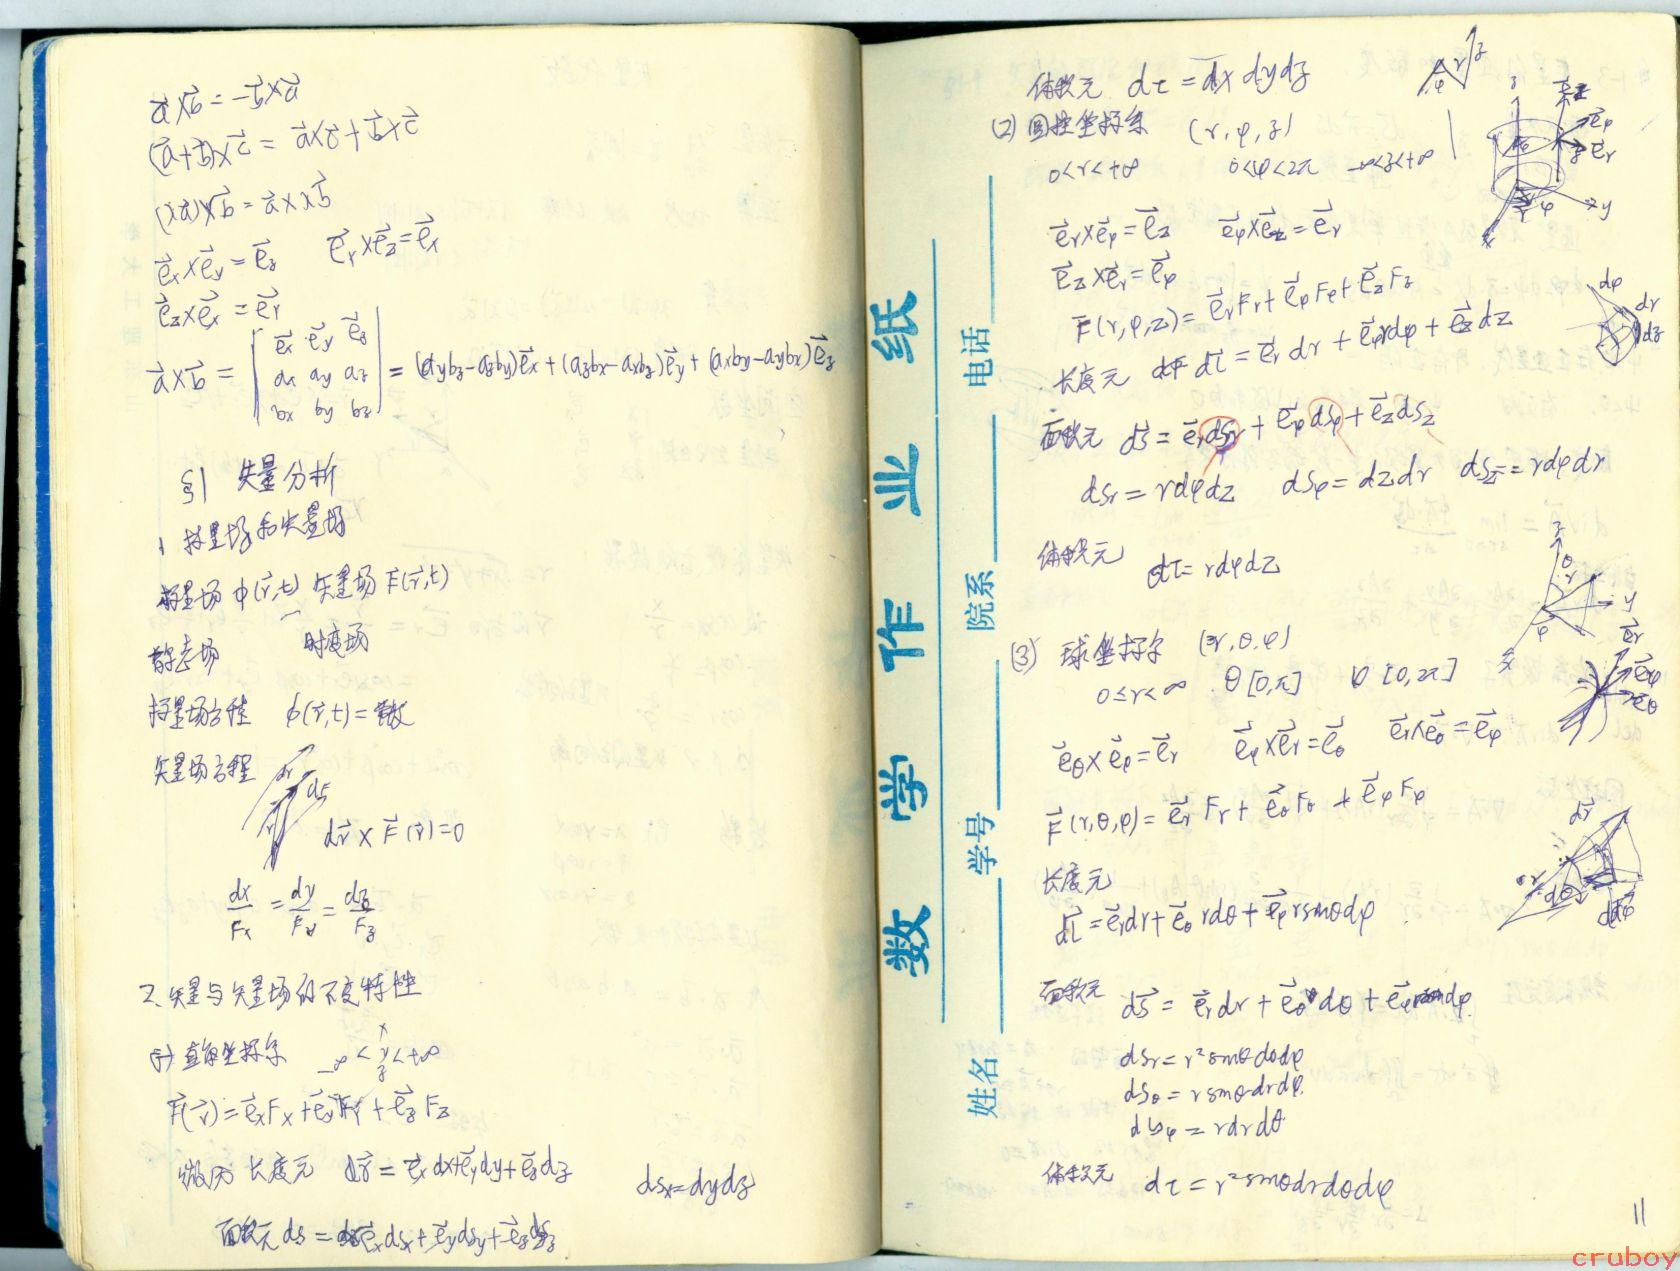 a⃗×b⃗ = -b⃗×a⃗
(a⃗+b⃗)×c⃗ = a⃗×c⃗ + b⃗×c⃗
(λa⃗)×b⃗ = a⃗×λb⃗
e⃗x×e⃗y = e⃗z e⃗y×e⃗z = e⃗x
e⃗z×e⃗x = e⃗y
a⃗×b⃗ = | e⃗x e⃗y e⃗z | = (aybz-azby)e⃗x + (azbx-axbz)e⃗y + (axby-aybx)e⃗z
ax ay az
bx by bz
§1 矢量分析
1 标量场和矢量场
标量场 φ(r⃗,t) 矢量场 F⃗(r⃗,t)
静态场 时变场
标量场方程 φ(r⃗,t) = 常数
矢量场方程
dr⃗ × F⃗(r⃗) = 0
dx/Fx = dy/Fy = dz/Fz
2. 矢量与矢量场的不变特性
(1) 直角坐标系 -∞ < x y z < +∞
F⃗(r⃗) = e⃗xFx + e⃗yFy + e⃗zFz
微元 长度元 dr⃗ = e⃗xdx + e⃗ydy + e⃗zdz dsx = dydz
面积元 ds = e⃗xdsx + e⃗ydsy + e⃗zdsz
体积元 dτ = dx dy dz
(2) 圆柱坐标系 (r, φ, z)
0<r<+∞ 0<φ<2π -∞<z<+∞
e⃗r×e⃗φ = e⃗z e⃗φ×e⃗z = e⃗r
e⃗z×e⃗r = e⃗φ
F(r,φ,z) = e⃗rFr + e⃗φFφ + e⃗zFz
长度元 dl⃗ = e⃗r dr + e⃗φrdφ + e⃗z dz
面积元 ds⃗ = e⃗rdsr + e⃗φdsφ + e⃗zdsz
dsr = rdφdz dsφ = dzdr dsz = rdφdr
体积元 dτ = rdφdz
(3) 球坐标系 (r,θ,φ)
0≤r<∞ θ[0,π] φ[0,2π]
e⃗θ×e⃗φ = e⃗r e⃗φ×e⃗r = e⃗θ e⃗r×e⃗θ = e⃗φ
F⃗(r,θ,φ) = e⃗rFr + e⃗θFθ + e⃗φFφ
长度元
dl⃗ = e⃗rdr + e⃗θ rdθ + e⃗φ rsinθdφ
面积元 ds⃗ = e⃗rdr + e⃗θ dθ + e⃗φ dφ
dsr = r²sinθdθdφ
dsθ = rsinθdrdφ
dsφ = rdrdθ
体积元 dτ = r²sinθdrdθdφ
11
数学作业纸
姓名 学号 院系 电话
cruboy